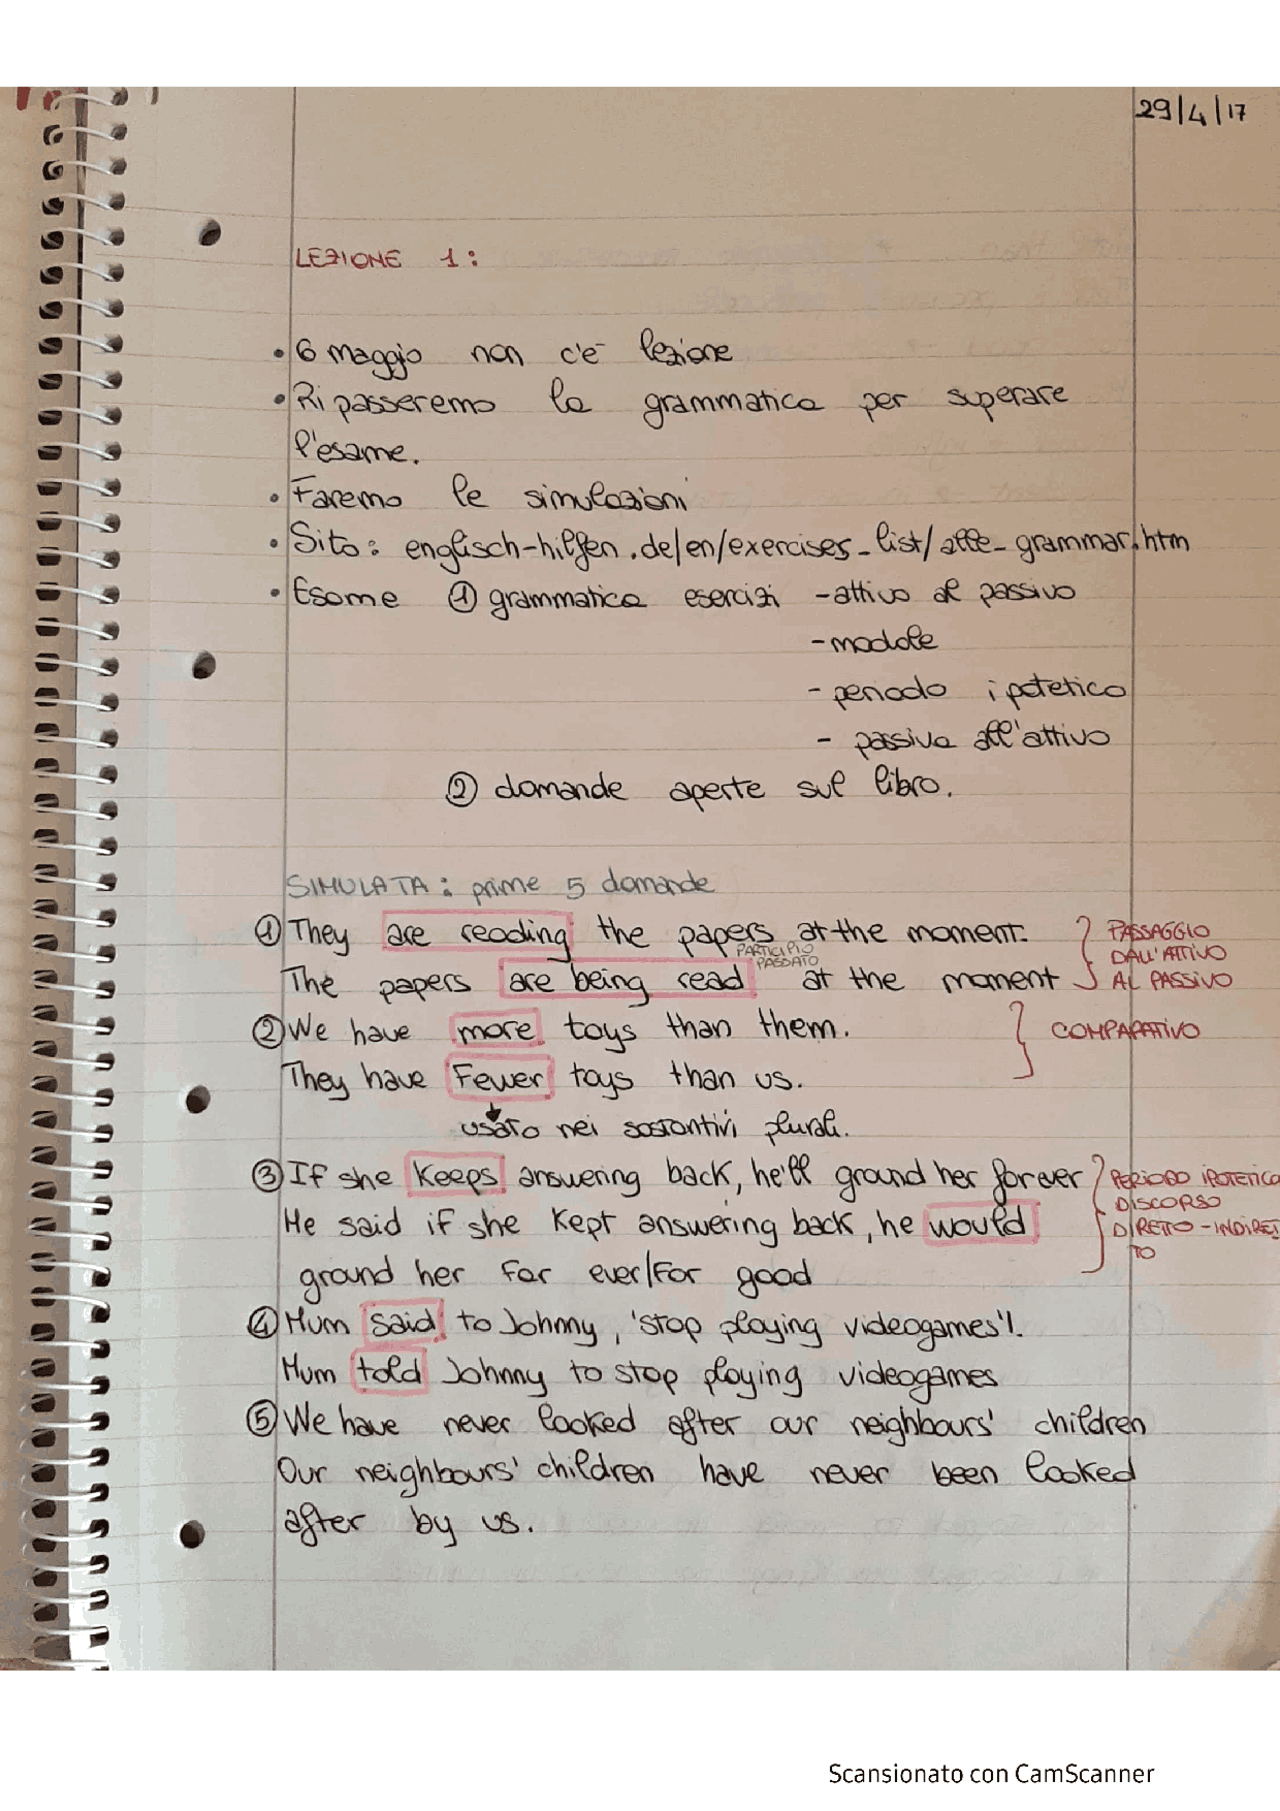 29/4/17
LEZIONE 1:
• 6 maggio non c'è lezione
• Ripasseremo la grammatica per superare
l'esame.
• Faremo le simulazioni
• Sito: englisch-hilfen.de/en/exercises_list/alle_grammar.htm
• Esame ① grammatica esercizi -attivo al passivo
-modale
- periodo ipotetico
- passivo all'attivo
② domande aperte sul libro.
SIMULATA: prime 5 domande
① They are reading the papers at the moment. } PASSAGGIO DALL'ATTIVO AL PASSIVO
PARTICIPIO PASSATO
The papers are being read at the moment
② We have more toys than them. } COMPARATIVO
They have Fewer toys than us.
↓
usato nei sostantivi plurali.
③ If she Keeps answering back, he'll ground her forever } PERIODO IPOTETICO DISCORSO DIRETTO-INDIRETTO
He said if she Kept answering back, he would
ground her for ever/For good
④ Mum said to Johnny, 'stop playing videogames'!.
Mum told Johnny to stop playing videogames
⑤ We have never looked after our neighbours' children
Our neighbours' children have never been looked
after by us.
Scansionato con CamScanner